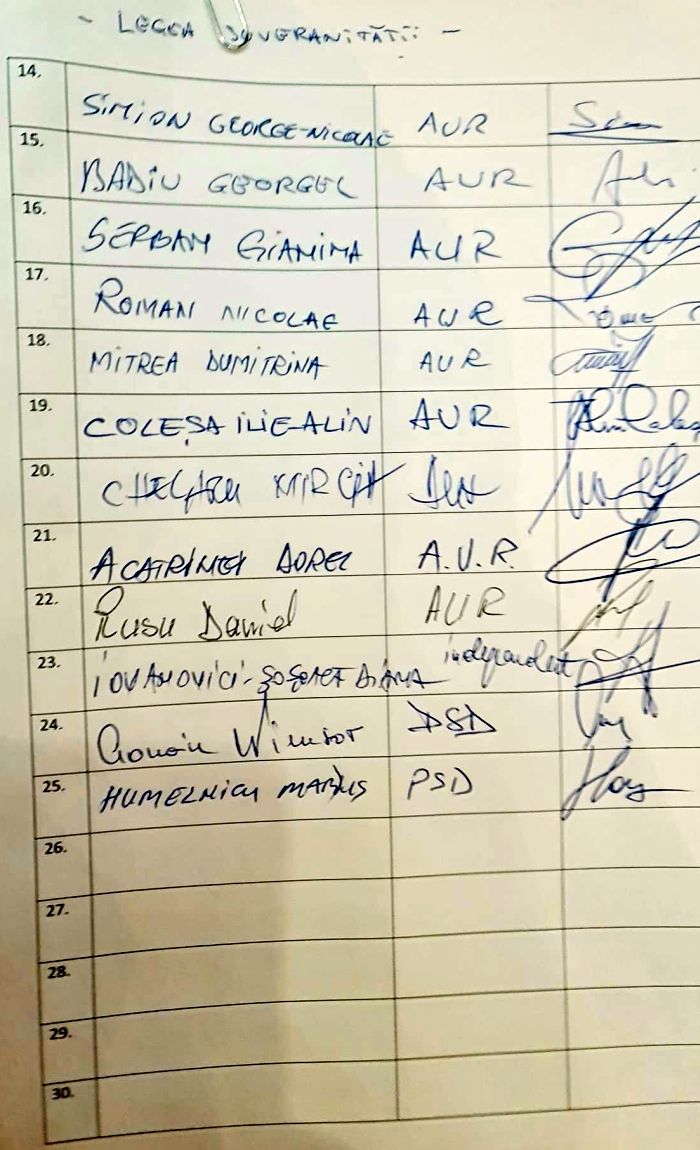 - LEGEA SUVERANITĂȚII -
14. SIMION GEORGE-NICOLAE AUR
15. BADIU GEORGEL AUR
16. SERBAN GIANINA AUR
17. ROMAN NICOLAE AUR
18. MITREA DUMITRINA AUR
19. COLEȘA ILIE-ALIN AUR
20. CHELARU MIRCEA
21. ACATRINEI DOREL A.U.R.
22. Rusu Daniel AUR
23. IOVANOVICI-ȘOȘOACĂ DIANA independent
24. PSD
25. HUMELNICU MARIUS PSD
26.
27.
28.
29.
30.